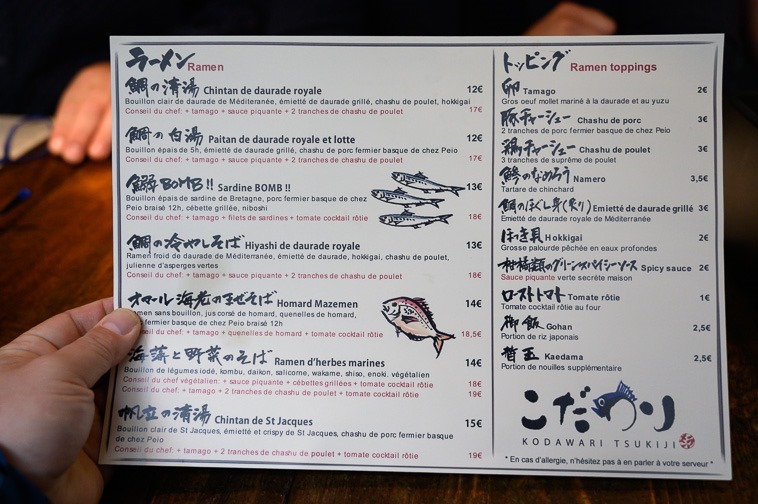 ラーメン Ramen
鯛の清湯 Chintan de daurade royale 12€
Bouillon clair de daurade de Méditeranée, émietté de daurade grillé, chashu de poulet, hokkigai
Conseil du chef: + tamago + sauce piquante + 2 tranches de chashu de poulet 17€
鯛の白湯 Paitan de daurade royale et lotte 12€
Bouillon épais de 5h, émietté de daurade grillé, chashu porc fermier basque de chez Peio
Conseil du chef: + tamago + sauce piquante + 2 tranches de chashu de poulet 17€
鰯BOMB!! Sardine BOMB !! 13€
Bouillon épais de sardine de Bretagne, porc fermier basque de chez
Peio braisé 12h, cébette grillée, niboshi
Conseil du chef: + tamago + filets de sardines + tomate cocktail rôtie 18€
鯛の冷やしそば Hiyashi de daurade royale 13€
Ramen froid de daurade de Méditerranée, émietté de daurade, hokkigai, chashu de poulet,
julienne d'asperges vertes
Conseil du chef: + tamago + sauce piquante + 2 tranches de chashu de poulet 18€
オマール海老のまぜそば Homard Mazemen 14€
men sans bouillon, jus corsé de homard, quenelles de homard,
fermier basque de chez Peio braisé 12h
seil du chef: + tamago + quenelles de homard + tomate cocktail rôtie 18,5€
海藻と野菜のそば Ramen d'herbes marines 14€
Bouillon de légumes iodé, kombu, daikon, salicorne, wakame, shiso, enoki, végétalien
Conseil du chef végétalien: + sauce piquante + cébettes grillées + tomate cocktail rôtie 18€
Conseil du chef: + tamago + 2 tranches de chashu de poulet + tomate cocktail rôtie 19€
帆立の清湯 Chintan de St Jacques 15€
Bouillon clair de St Jacques, émietté et crispy de St Jacques, chashu de porc fermier basque
de chez Peio
Conseil du chef: + tamago + 2 tranches de chashu de poulet + tomate cocktail rôtie 19€
トッピング Ramen toppings
卵 Tamago 2€
Gros oeuf mollet mariné à la daurade et au yuzu
豚チャーシュー Chashu de porc 3€
2 tranches de porc fermier basque de chez Peio
鶏チャーシュー Chashu de poulet 3€
3 tranches de suprême de poulet
鯵のなめろう Namero 3,5€
Tartare de chinchard
鯛のほぐし身(炙り) Emietté de daurade grillé 3€
Emietté de daurade royale de Méditerranée
ほっき貝 Hokkigai 2€
Grosse palourde pêchée en eaux profondes
柑橘類のグリーンスパイシーソース Spicy sauce 2€
Sauce piquante verte secrète maison
ローストトマト Tomate rôtie 1€
Tomate cocktail rôtie au four
御飯 Gohan 2,5€
Portion de riz japonais
替玉 Kaedama 2,5€
Portion de nouilles supplémentaire
こだわり
KODAWARI TSUKIJI
* En cas d'allergie, n'hésitez pas à en parler à votre serveur *